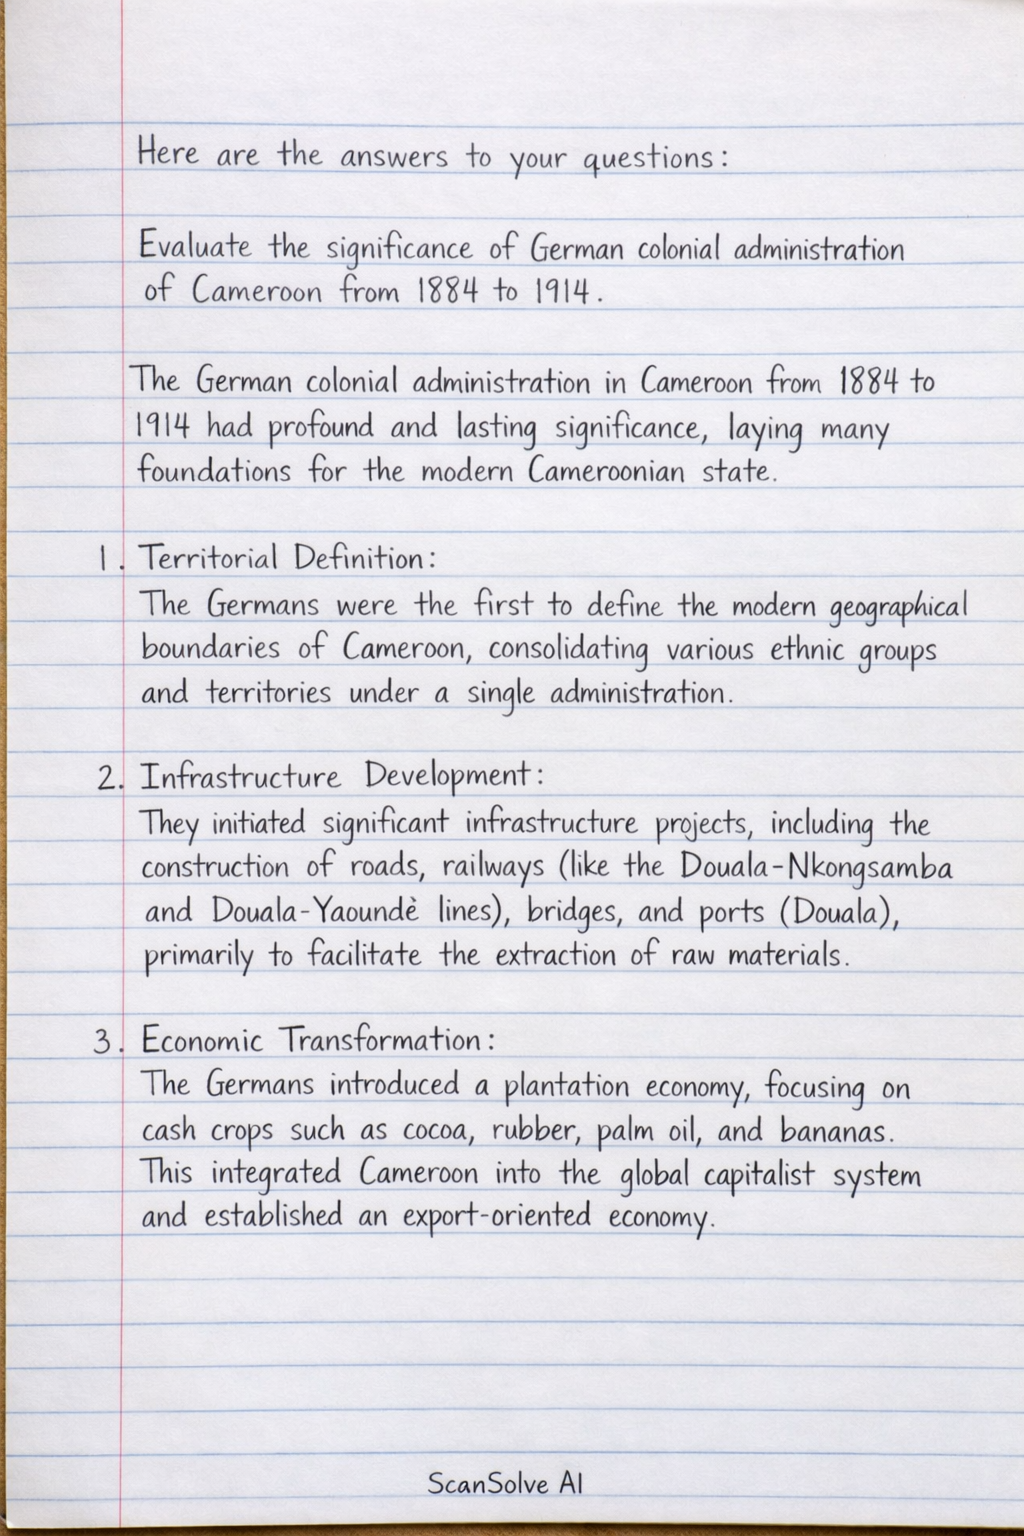 Here are the answers to your questions:
Evaluate the significance of German colonial administration
of Cameroon from 1884 to 1914.
The German colonial administration in Cameroon from 1884 to
1914 had profound and lasting significance, laying many
foundations for the modern Cameroonian state.
1. Territorial Definition:
The Germans were the first to define the modern geographical
boundaries of Cameroon, consolidating various ethnic groups
and territories under a single administration.
2. Infrastructure Development:
They initiated significant infrastructure projects, including the
construction of roads, railways (like the Douala-Nkongsamba
and Douala-Yaoundè lines), bridges, and ports (Douala),
primarily to facilitate the extraction of raw materials.
3. Economic Transformation:
The Germans introduced a plantation economy, focusing on
cash crops such as cocoa, rubber, palm oil, and bananas.
This integrated Cameroon into the global capitalist system
and established an export-oriented economy.
ScanSolve AI